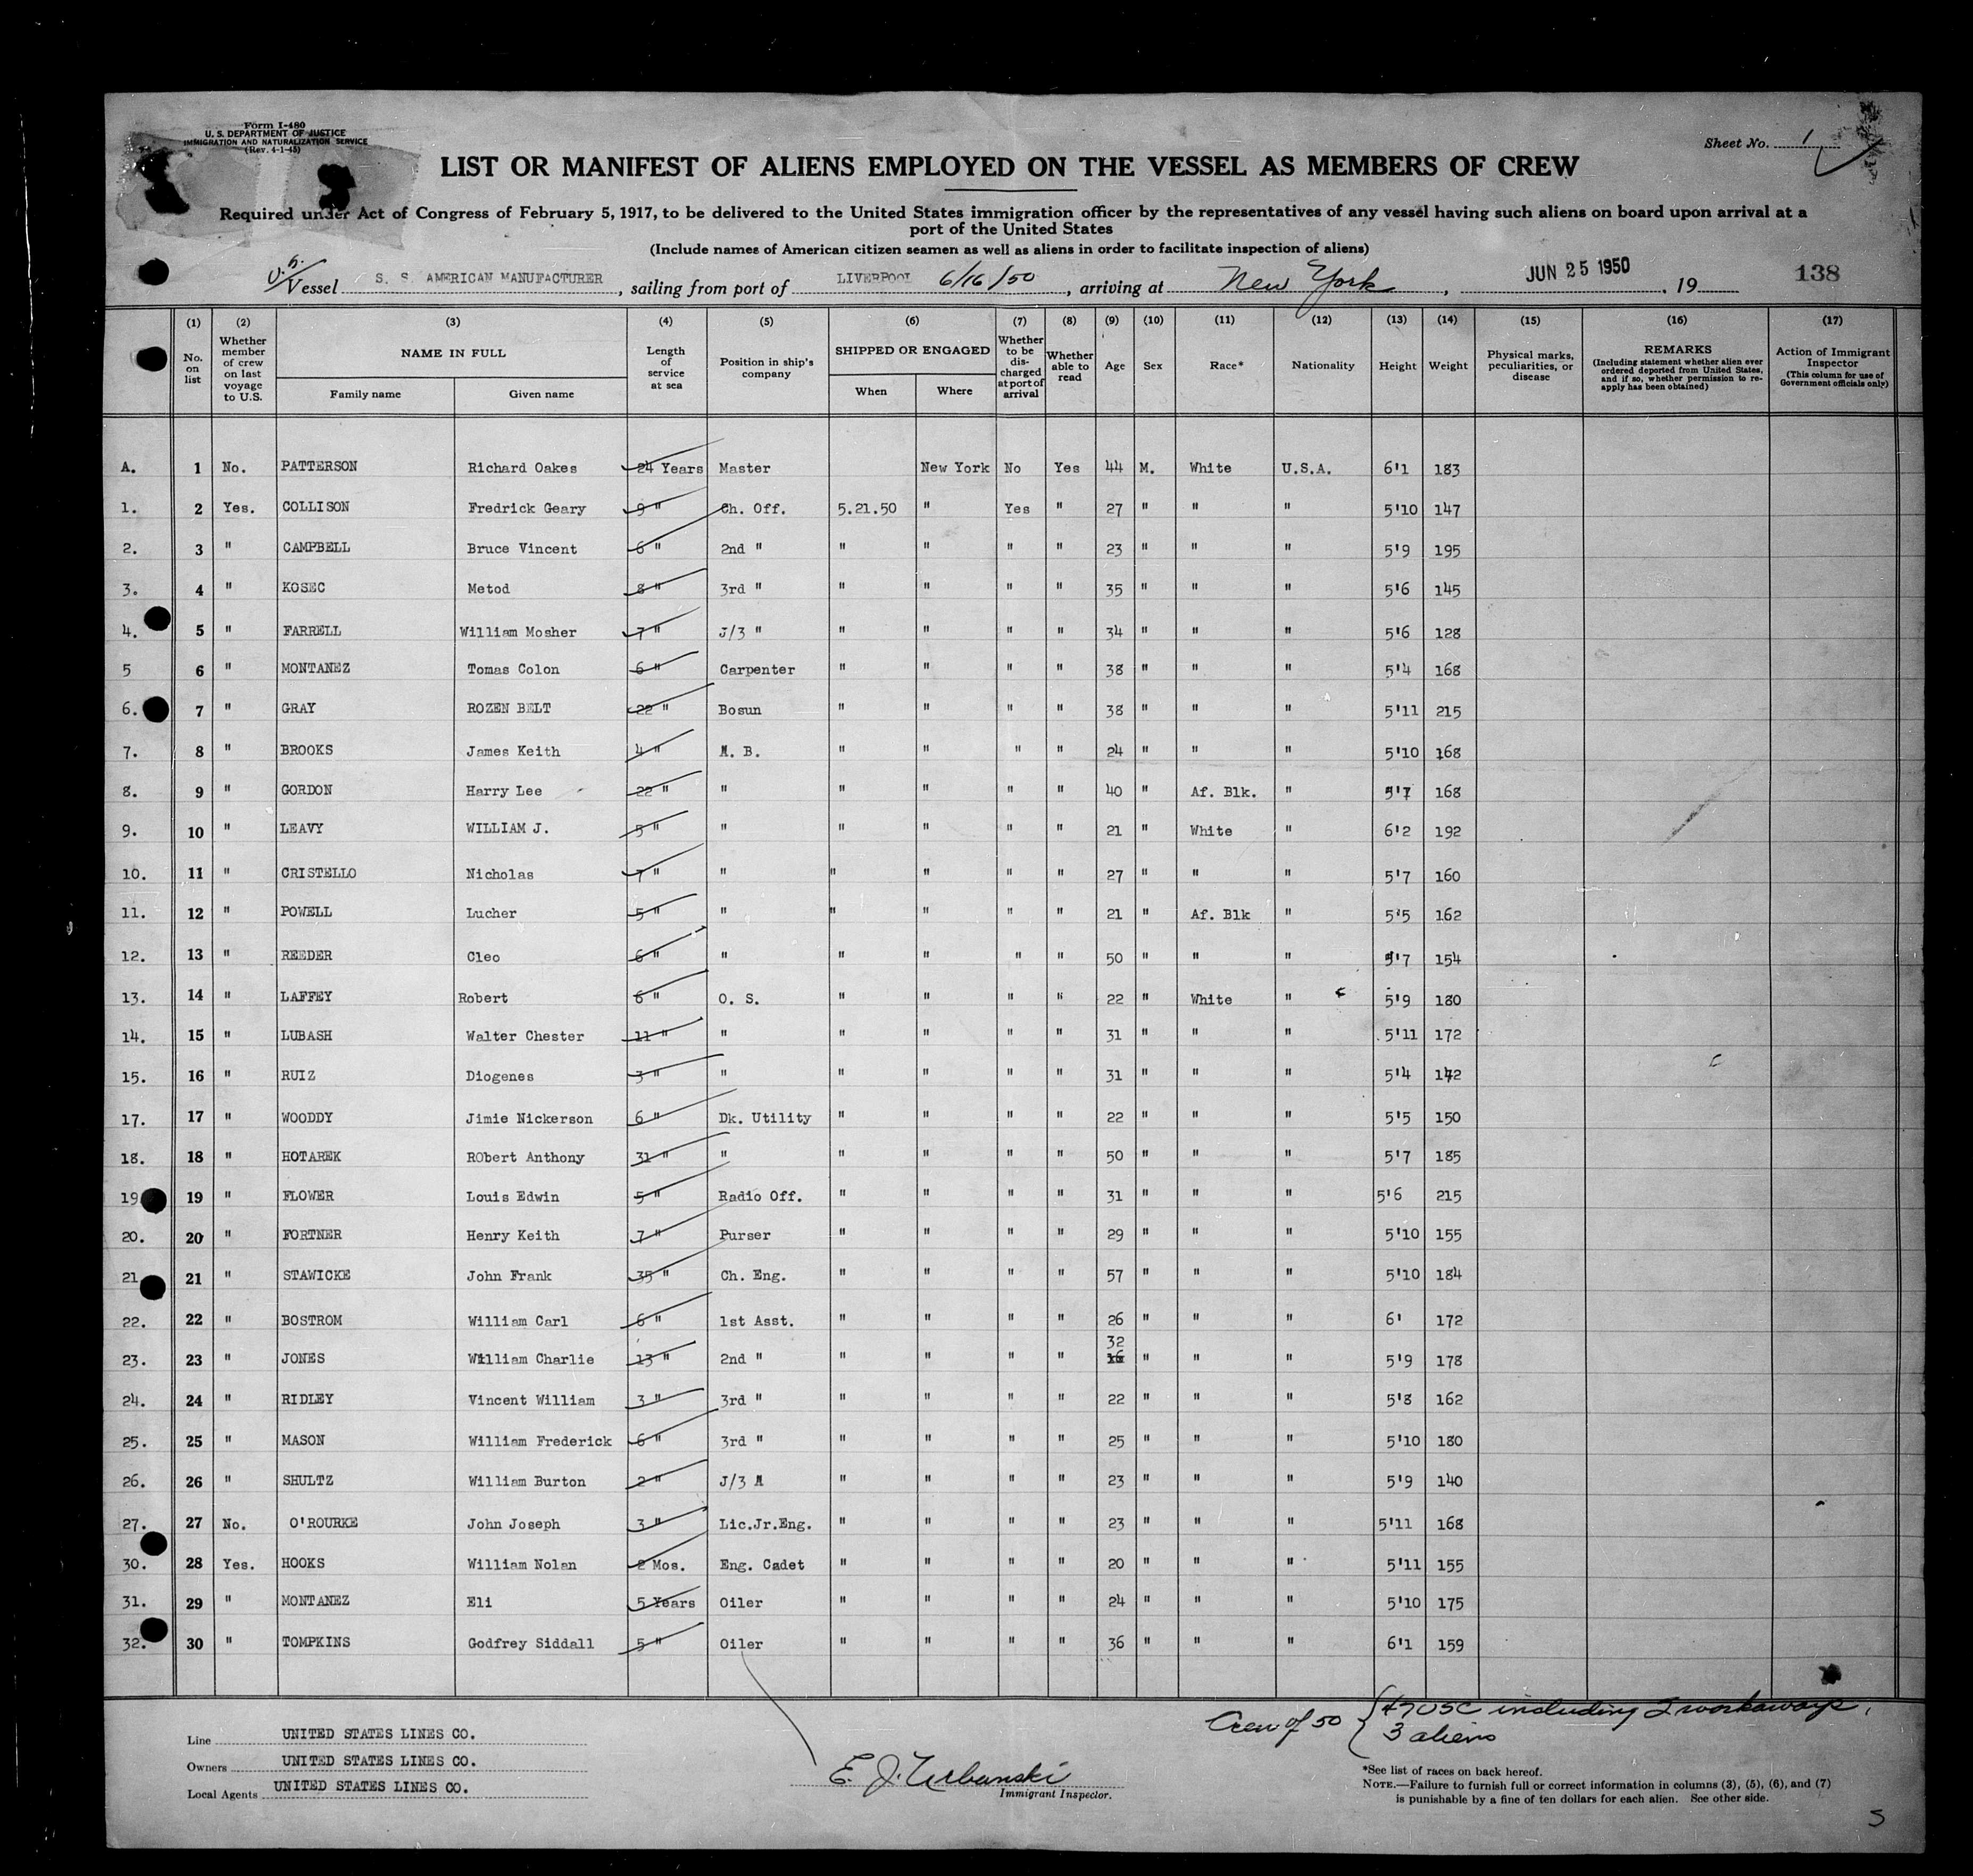 Form I-480
U. S. DEPARTMENT OF JUSTICE
IMMIGRATION AND NATURALIZATION SERVICE
(Rev. 4-1-45)
Sheet No. 1
LIST OR MANIFEST OF ALIENS EMPLOYED ON THE VESSEL AS MEMBERS OF CREW
Required under Act of Congress of February 5, 1917, to be delivered to the United States immigration officer by the representatives of any vessel having such aliens on board upon arrival at a
port of the United States
(Include names of American citizen seamen as well as aliens in order to facilitate inspection of aliens)
Vessel S. S. AMERICAN MANUFACTURER, sailing from port of LIVERPOOL 6/16/50, arriving at New York, JUN 25 1950, 19 138
(1) (2) (3) (4) (5) (6) (7) (8) (9) (10) (11) (12) (13) (14) (15) (16) (17)
No. on list
Whether member of crew on last voyage to U.S.
NAME IN FULL
Family name
Given name
Length of service at sea
Position in ship's company
SHIPPED OR ENGAGED
When
Where
Whether to be discharged at port of arrival
Whether able to read
Age
Sex
Race*
Nationality
Height
Weight
Physical marks, peculiarities, or disease
REMARKS
(Including statement whether alien ever ordered deported from United States, and if so, whether permission to reapply has been obtained)
Action of Immigrant Inspector
(This column for use of Government officials only)
A. 1 No. PATTERSON Richard Oakes 24 Years Master New York No Yes 44 M. White U.S.A. 6'1 183
1. 2 Yes. COLLISON Fredrick Geary 9 " Ch. Off. 5.21.50 " Yes " 27 " " " 5'10 147
2. 3 " CAMPBELL Bruce Vincent 6 " 2nd " " " " " 23 " " " 5'9 195
3. 4 " KOSEC Metod 8 " 3rd " " " " " 35 " " " 5'6 145
4. 5 " FARRELL William Mosher 7 " J/3 " " " " " 34 " " " 5'6 128
5 6 " MONTANEZ Tomas Colon 6 " Carpenter " " " " 38 " " " 5'4 168
6. 7 " GRAY ROZEN BELT 22 " Bosun " " " " 38 " " " 5'11 215
7. 8 " BROOKS James Keith 4 " A. B. " " " " 24 " " " 5'10 168
8. 9 " GORDON Harry Lee 22 " " " " " " 40 " Af. Blk. " 5'7 168
9. 10 " LEAVY WILLIAM J. 5 " " " " " " 21 " White " 6'2 192
10. 11 " CRISTELLO Nicholas 7 " " " " " " 27 " " " 5'7 160
11. 12 " POWELL Lucher 5 " " " " " " 21 " Af. Blk " 5'5 162
12. 13 " REEDER Cleo 6 " " " " " " 50 " " " 5'7 154
13. 14 " LAFFEY Robert 6 " O. S. " " " " 22 " White " 5'9 180
14. 15 " LUBASH Walter Chester 11 " " " " " " 31 " " " 5'11 172
15. 16 " RUIZ Diogenes 3 " " " " " " 31 " " " 5'4 142
17. 17 " WOODDY Jimie Nickerson 6 " Dk. Utility " " " " 22 " " " 5'5 150
18. 18 " HOTAREK RObert Anthony 31 " " " " " " 50 " " " 5'7 185
19 19 " FLOWER Louis Edwin 5 " Radio Off. " " " " 31 " " " 5'6 215
20. 20 " FORTNER Henry Keith 7 " Purser " " " " 29 " " " 5'10 155
21 21 " STAWICKE John Frank 35 " Ch. Eng. " " " " 57 " " " 5'10 184
22. 22 " BOSTROM William Carl 6 " 1st Asst. " " " " 26 " " " 6' 172
23. 23 " JONES William Charlie 13 " 2nd " " " " " 32 " " " 5'9 178
24. 24 " RIDLEY Vincent William 3 " 3rd " " " " " 22 " " " 5'8 162
25. 25 " MASON William Frederick 6 " 3rd " " " " " 25 " " " 5'10 180
26. 26 " SHULTZ William Burton 2 " J/3 A " " " " 23 " " " 5'9 140
27. 27 No. O'ROURKE John Joseph 3 " Lic.Jr.Eng. " " " " 23 " " " 5'11 168
30. 28 Yes. HOOKS William Nolan 2 Mos. Eng. Cadet " " " " 20 " " " 5'11 155
31. 29 " MONTANEZ Eli 5 Years Oiler " " " " 24 " " " 5'10 175
32. 30 " TOMPKINS Godfrey Siddall 5 " Oiler " " " " 36 " " " 6'1 159
Crew of 50 { 47 USC including 2 workaways,
3 aliens
Line UNITED STATES LINES CO.
Owners UNITED STATES LINES CO.
Local Agents UNITED STATES LINES CO.
E. J. Urbanski
Immigrant Inspector.
*See list of races on back hereof.
NOTE.—Failure to furnish full or correct information in columns (3), (5), (6), and (7)
is punishable by a fine of ten dollars for each alien. See other side.